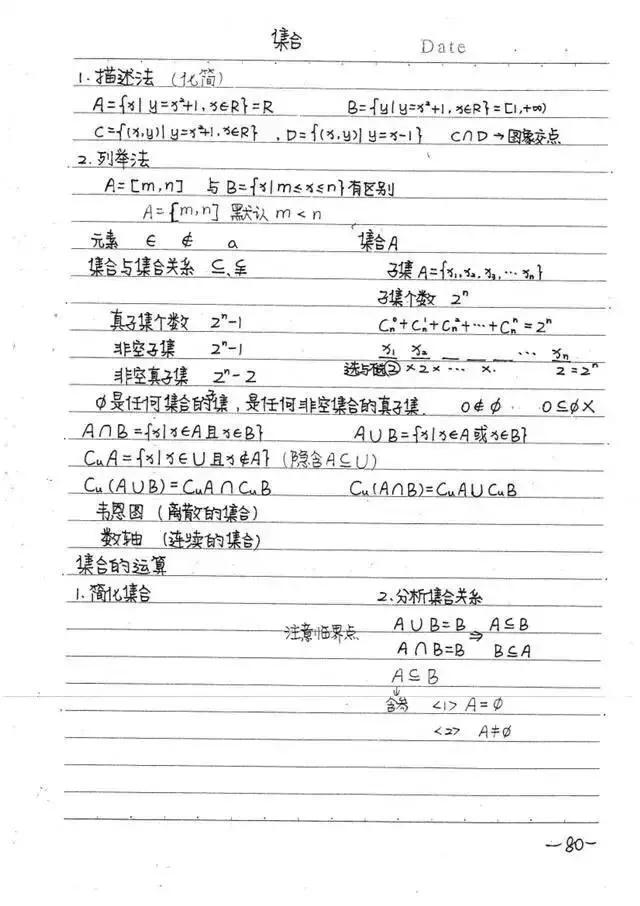 集合 Date
1.描述法 (化简)
A={x|y=x²+1,x∈R}=R B={y|y=x²+1,x∈R}=[1,+∞)
C={(x,y)|y=x²+1,x∈R} , D={(x,y)|y=x-1} C∩D→图象交点
2.列举法
A=[m,n] 与B={x|m≤x≤n}有区别
A=[m,n] 默认m<n
元素 ∈ ∉ a 集合A
集合与集合关系 ⊆、⊊ 子集A={x₁,x₂,x₃,…xₙ}
子集个数 2ⁿ
真子集个数 2ⁿ-1 Cₙ⁰+Cₙ¹+Cₙ²+…+Cₙⁿ=2ⁿ
非空子集 2ⁿ-1 x₁ x₂ _ _ _ … xₙ
非空真子集 2ⁿ-2 选与不选② ×2×… ×. 2=2ⁿ
∅是任何集合的子集,是任何非空集合的真子集. 0∉∅ 0⊆∅×
A∩B={x|x∈A且x∈B} A∪B={x|x∈A或x∈B}
CuA={x|x∈U且x∉A} (隐含A⊆U)
Cu(A∪B)=CuA∩CuB Cu(A∩B)=CuA∪CuB
韦恩图 (离散的集合)
数轴 (连续的集合)
集合的运算
1.简化集合 2.分析集合关系
注意临界点 A∪B=B ⇒ A⊆B
A∩B=B B⊆A
A⊆B
↓
含参 <1> A=∅
<2> A≠∅
-80-